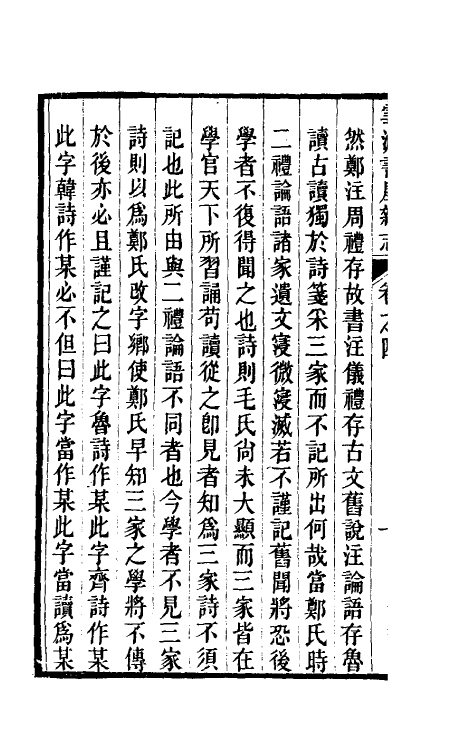 卷之四
然鄭注周禮存故書注儀禮存古文舊說注論語存魯
讀古讀獨於詩箋采三家而不記所出何哉當鄭氏時
二禮論語諸家遺文寖微寖滅若不謹記舊聞將恐後
學者不復得聞之也詩則毛氏尙未大顯而三家皆在
學官天下所習誦苟讀從之卽見者知爲三家詩不須
記也此所由與二禮論語不同者也今學者不見三家
詩則以爲鄭氏改字鄉使鄭氏早知三家之學將不傳
於後亦必且謹記之曰此字魯詩作某此字齊詩作某
此字韓詩作某必不但曰此字當作某此字當讀爲某